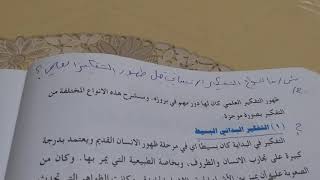 س/ ما انواع التفكير الانساني قبل ظهور التفكير العلمي؟
ج/
ظهور التفكير العلمي كان لها دور مهم في بروزه. وسنشرح هذه الأنواع المختلفة من
التفكير بصورة موجزة.
(١) التفكير البدائي البسيط
التفكير في البداية كان بسيطاً أي في مرحلة ظهور الانسان القديم ويعتمد بدرجة
كبيرة على تجارب الانسان والظروف، وبخاصة الطبيعية التي يمر بها. وكان من